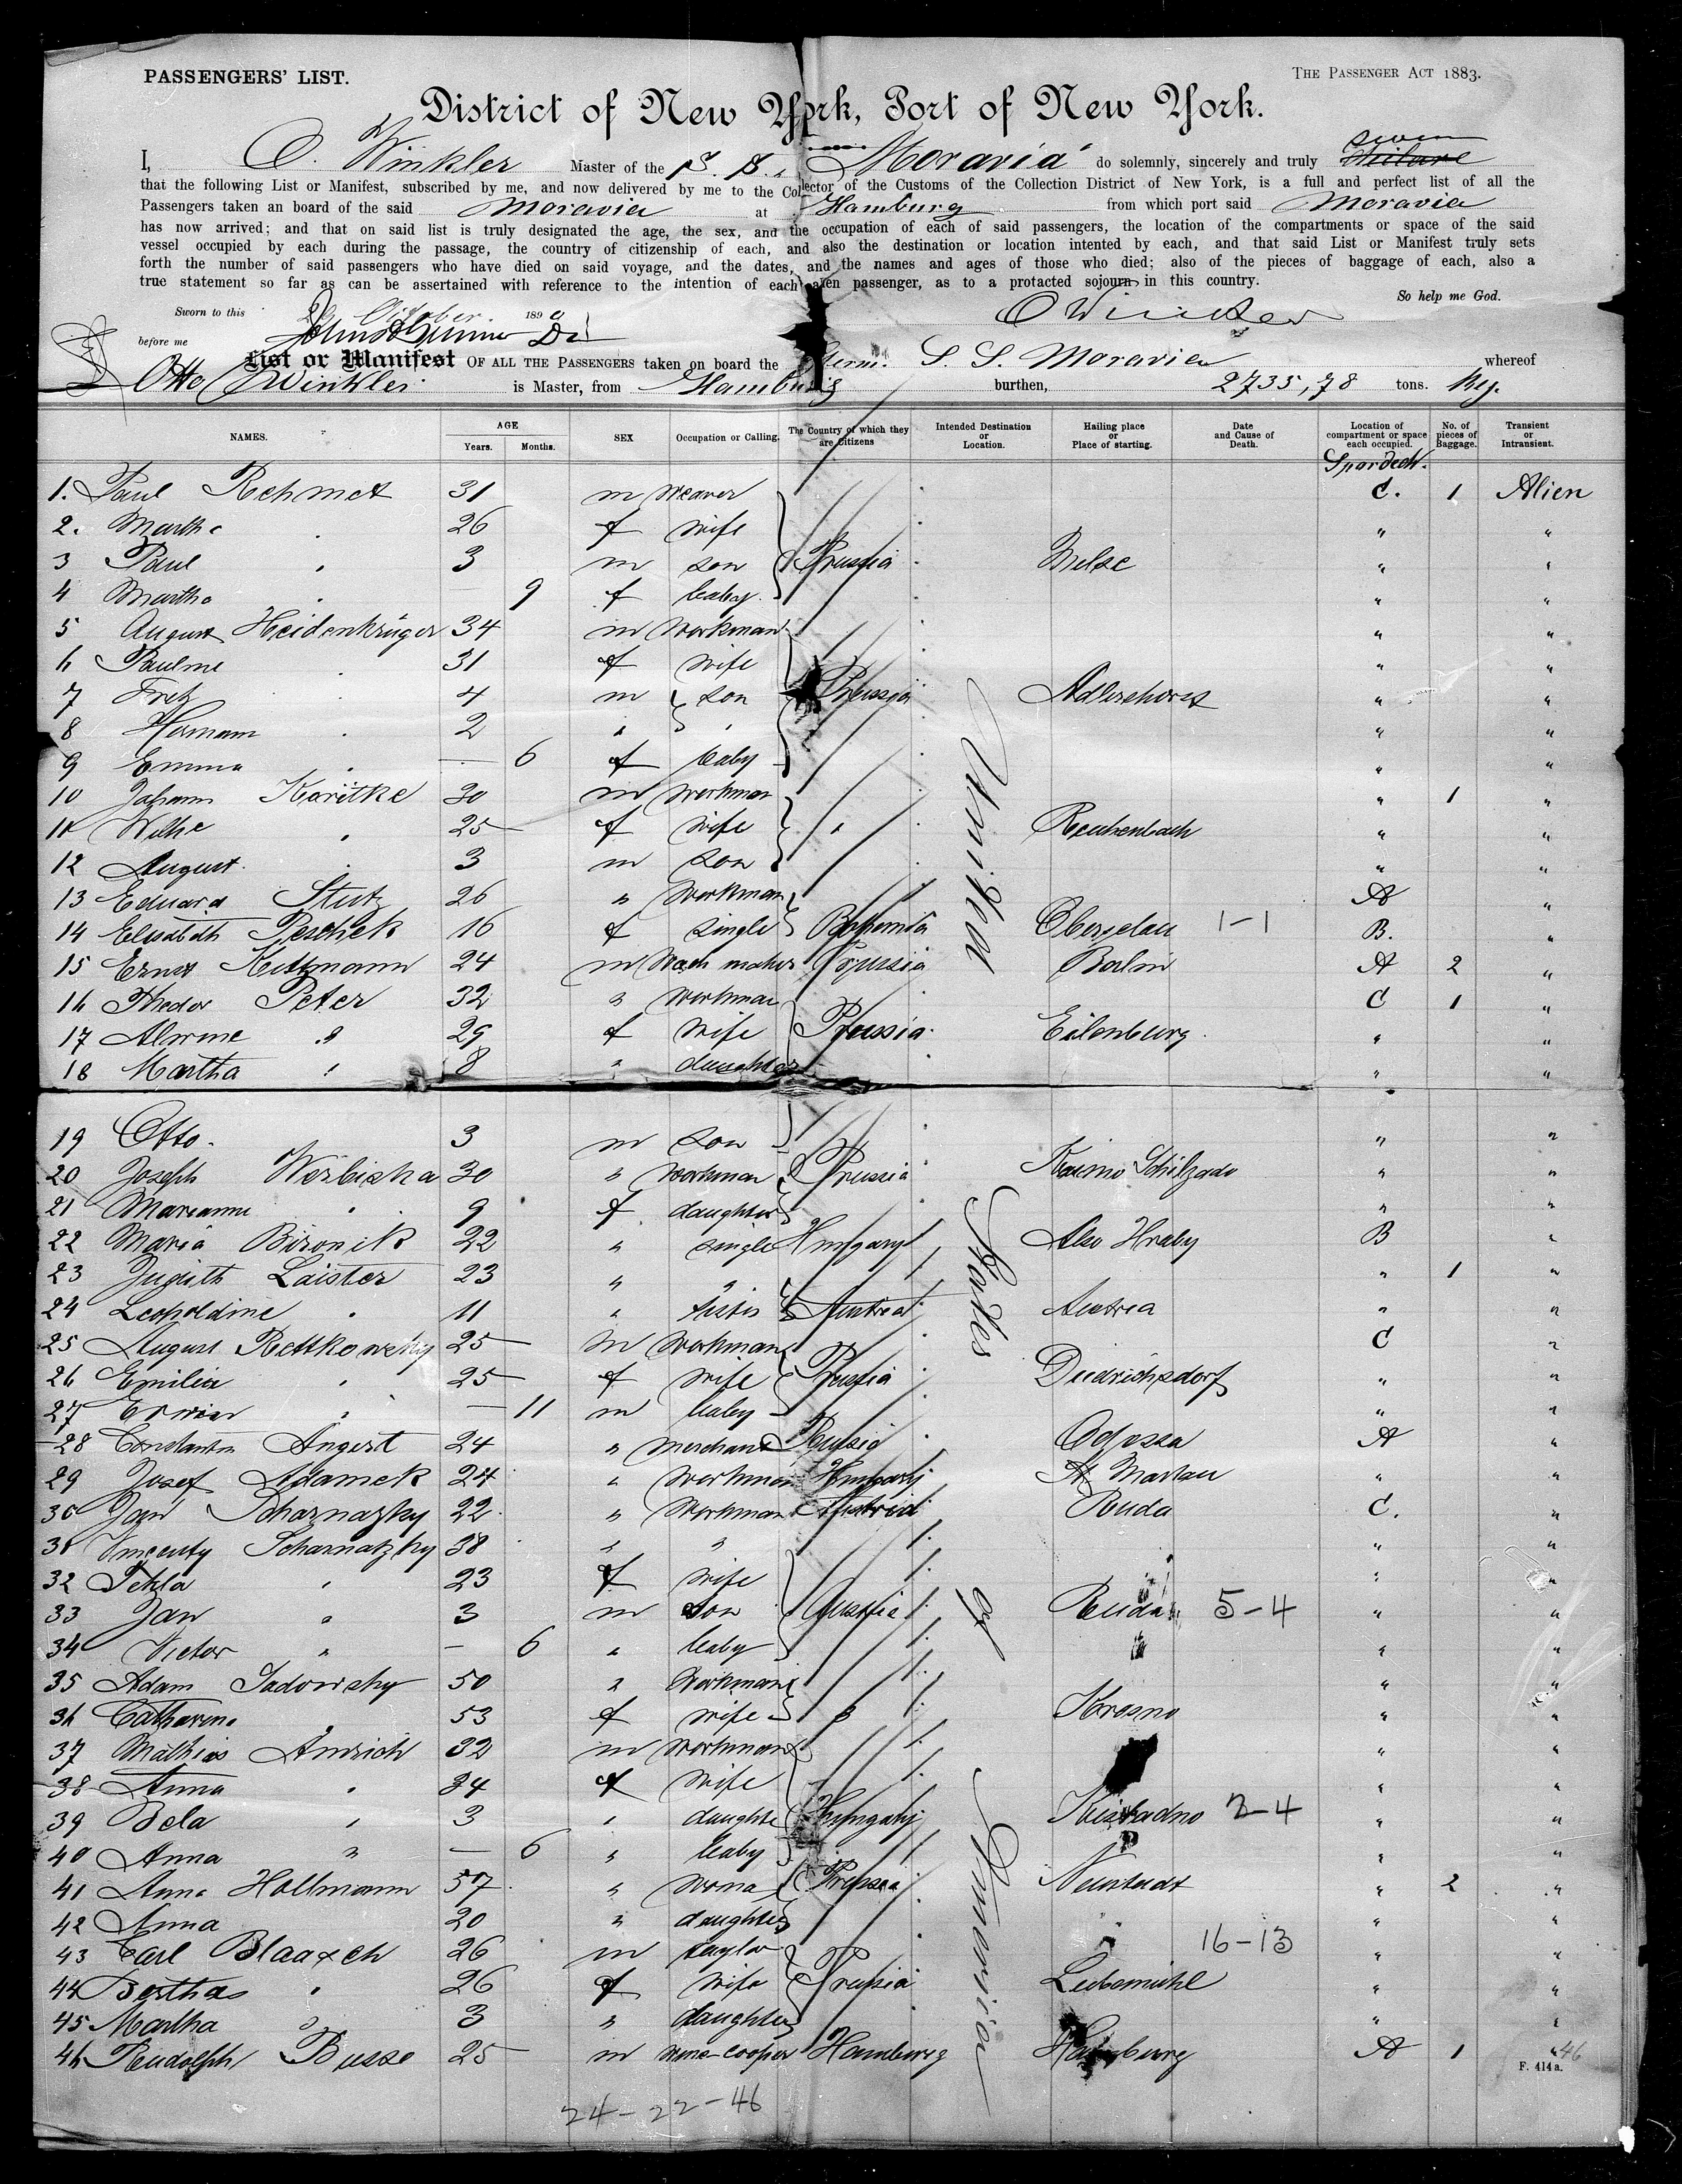 PASSENGERS' LIST.
THE PASSENGER ACT 1883.
District of New York, Port of New York.
I, O. Winkler Master of the S. S. Moravia do solemnly, sincerely and truly swear
that the following List or Manifest, subscribed by me, and now delivered by me to the Collector of the Customs of the Collection District of New York, is a full and perfect list of all the
Passengers taken an board of the said Moravia at Hamburg from which port said Moravia
has now arrived; and that on said list is truly designated the age, the sex, and the occupation of each of said passengers, the location of the compartments or space of the said
vessel occupied by each during the passage, the country of citizenship of each, and also the destination or location intented by each, and that said List or Manifest truly sets
forth the number of said passengers who have died on said voyage, and the dates, and the names and ages of those who died; also of the pieces of baggage of each, also a
true statement so far as can be ascertained with reference to the intention of each alien passenger, as to a protacted sojourn in this country.
So help me God.
Sworn to this October 189
O Winkler
before me
List or Manifest OF ALL THE PASSENGERS taken on board the Germ. S. S. Moravia whereof
Otto Winkler is Master, from Hamburg burthen, 2735,78 tons. Reg.
NAMES. AGE Years. Months. SEX Occupation or Calling. The Country of which they are Citizens Intended Destination or Location. Hailing place or Place of starting. Date and Cause of Death. Location of compartment or space each occupied. No. of pieces of Baggage. Transient or Intransient.
Spardeck.
United States of America
1. Paul 31 m weaver C. 1 Alien
2. Martha 26 f wife " "
3 Paul 3 m son Prussia " "
4 Martha 9 f baby " "
5 August Heidenkrüger 34 m workman " "
6 Pauline 31 f wife " "
7 Fritz 4 m son Prussia Adlershorst " "
8 Hermann 2 " " " "
9 Emma — 6 f baby " "
10 Johann Koritke 30 m workman " 1 "
11 Wilhe 25 f wife " Reichenbach " "
12 August 3 m son " "
13 Eduard Stutz 26 " workman A "
14 Elisabeth Peschek 16 f single Bohemia 1-1 B. "
15 Ernst 24 m Prussia Berlin A 2 "
16 Thedor Peter 32 " workman C 1 "
17 Alwine " 29 f wife Prussia Eilenburg " "
18 Martha " 8 " daughter " "
19 Otto 3 m son " "
20 Joseph Werbiska 30 " workman Prussia " "
21 Marianne " 9 f daughter " "
22 Maria 22 " single Hungary Also Hraby B "
23 Judith Laister 23 " " " 1 "
24 Leopoldine " 11 " Austria Austria " "
25 August Rettkowsky 25 m workman C "
26 Emilia " 25 f wife Prussia Diedrichsdorf " "
27 Erwin " — 11 m baby " "
28 Constantin Angert 24 " merchant Russia Odessa A "
29 Josef Adamek 24 " workman Hungary " "
30 Jan 22 " workman Austria Ruda C. "
31 Scharnatzky 38 " " " "
32 Tekla " 23 f wife " "
33 Jan " 3 m son Austria Ruda 5-4 " "
34 Victor " — 6 " baby " "
35 Adam Sadowsky 50 " workman " "
36 Catharina " 53 f wife " Krosno " "
37 Mathias Andrich 32 m workman " "
38 Anna " 34 f wife " "
39 Bela " 3 " daughte Hungary 2-4 " "
40 Anna " — 6 " baby " "
41 Anna Hollmann 57 " Prussia Neustadt " 2 "
42 Anna 20 " daughter " "
43 Carl 26 m taylor 16-13 " "
44 Bertha " 26 f wife Prussia Liebemühl " "
45 Martha " 3 " daughter " "
46 Rudolph Busse 25 m Hamburg Hamburg A 1 " 46
F. 414 a.
24-22-46